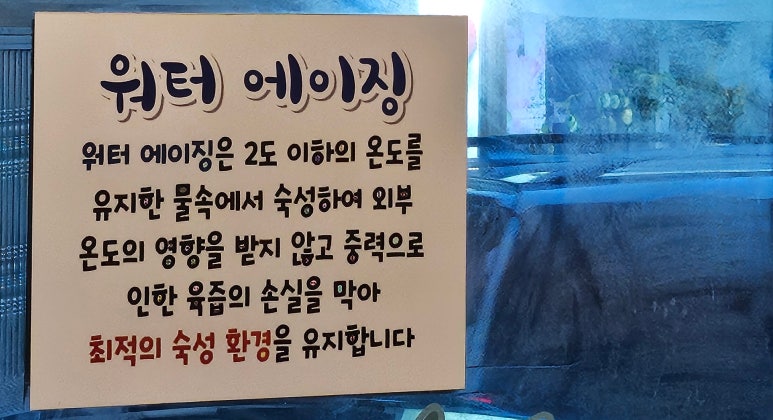 워터 에이징
워터 에이징은 2도 이하의 온도를
유지한 물속에서 숙성하여 외부
온도의 영향을 받지 않고 중력으로
인한 육즙의 손실을 막아
최적의 숙성 환경을 유지합니다